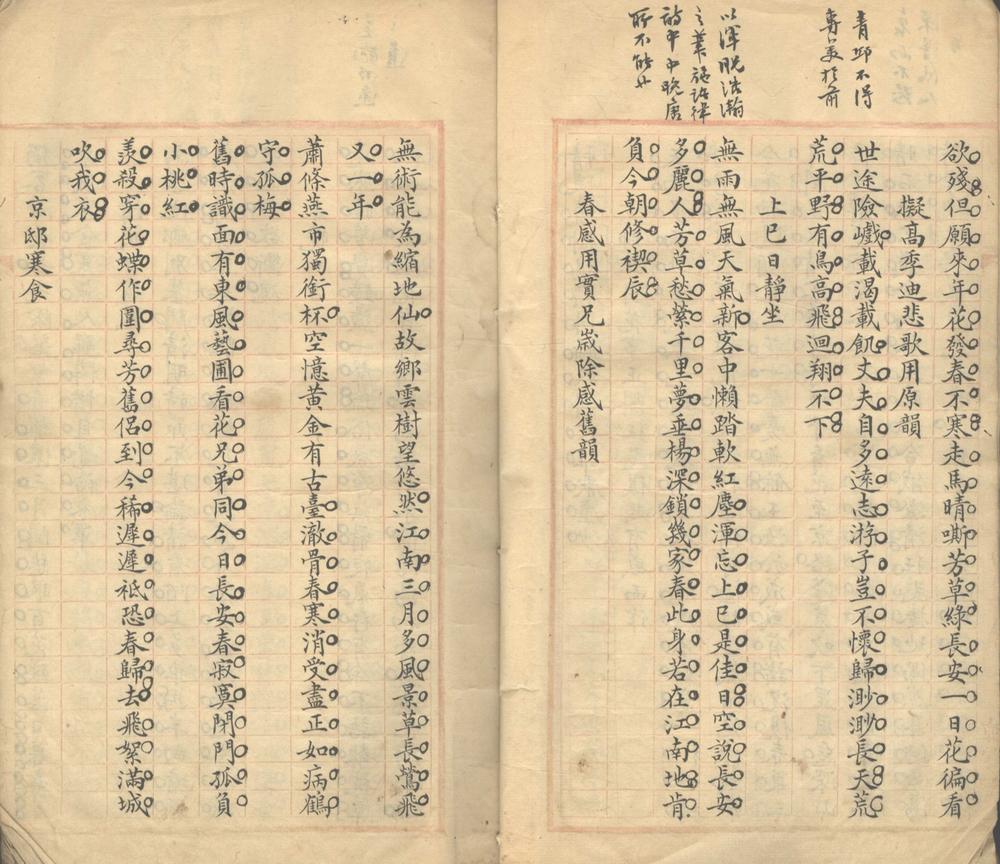 青邱不得
專美於前
以渾脫浩瀚
之筆施諸律
詩中中晚唐
所不能也
欲殘但願來年花發春不寒走馬晴嘶芳草綠長安一日花徧看
擬高季迪悲歌用原韻
世途險巇載渴載飢丈夫自多遠志游子豈不懷歸渺渺長天荒
荒平野有鳥高飛迴翔不下
上巳日靜坐
無雨無風天氣新客中懶踏軟紅塵渾忘上巳是佳日空說長安
多麗人芳草愁縈千里夢垂楊深鎖幾家春此身若在江南地肯
負今朝修禊辰
春感用實兄歲除感舊韻
無術能為縮地仙故鄉雲樹望悠然江南三月多風景草長鶯飛
又一年
蕭條燕市獨銜杯空憶黃金有古臺澈骨春寒消受盡正如病鶴
守孤梅
舊時識面有東風藝圃看花兄弟同今日長安春寂寞閉門孤負
小桃紅
羨殺穿花蝶作團尋芳舊侶到今稀遲遲祗恐春歸去飛絮滿城
吹我衣
京邸寒食